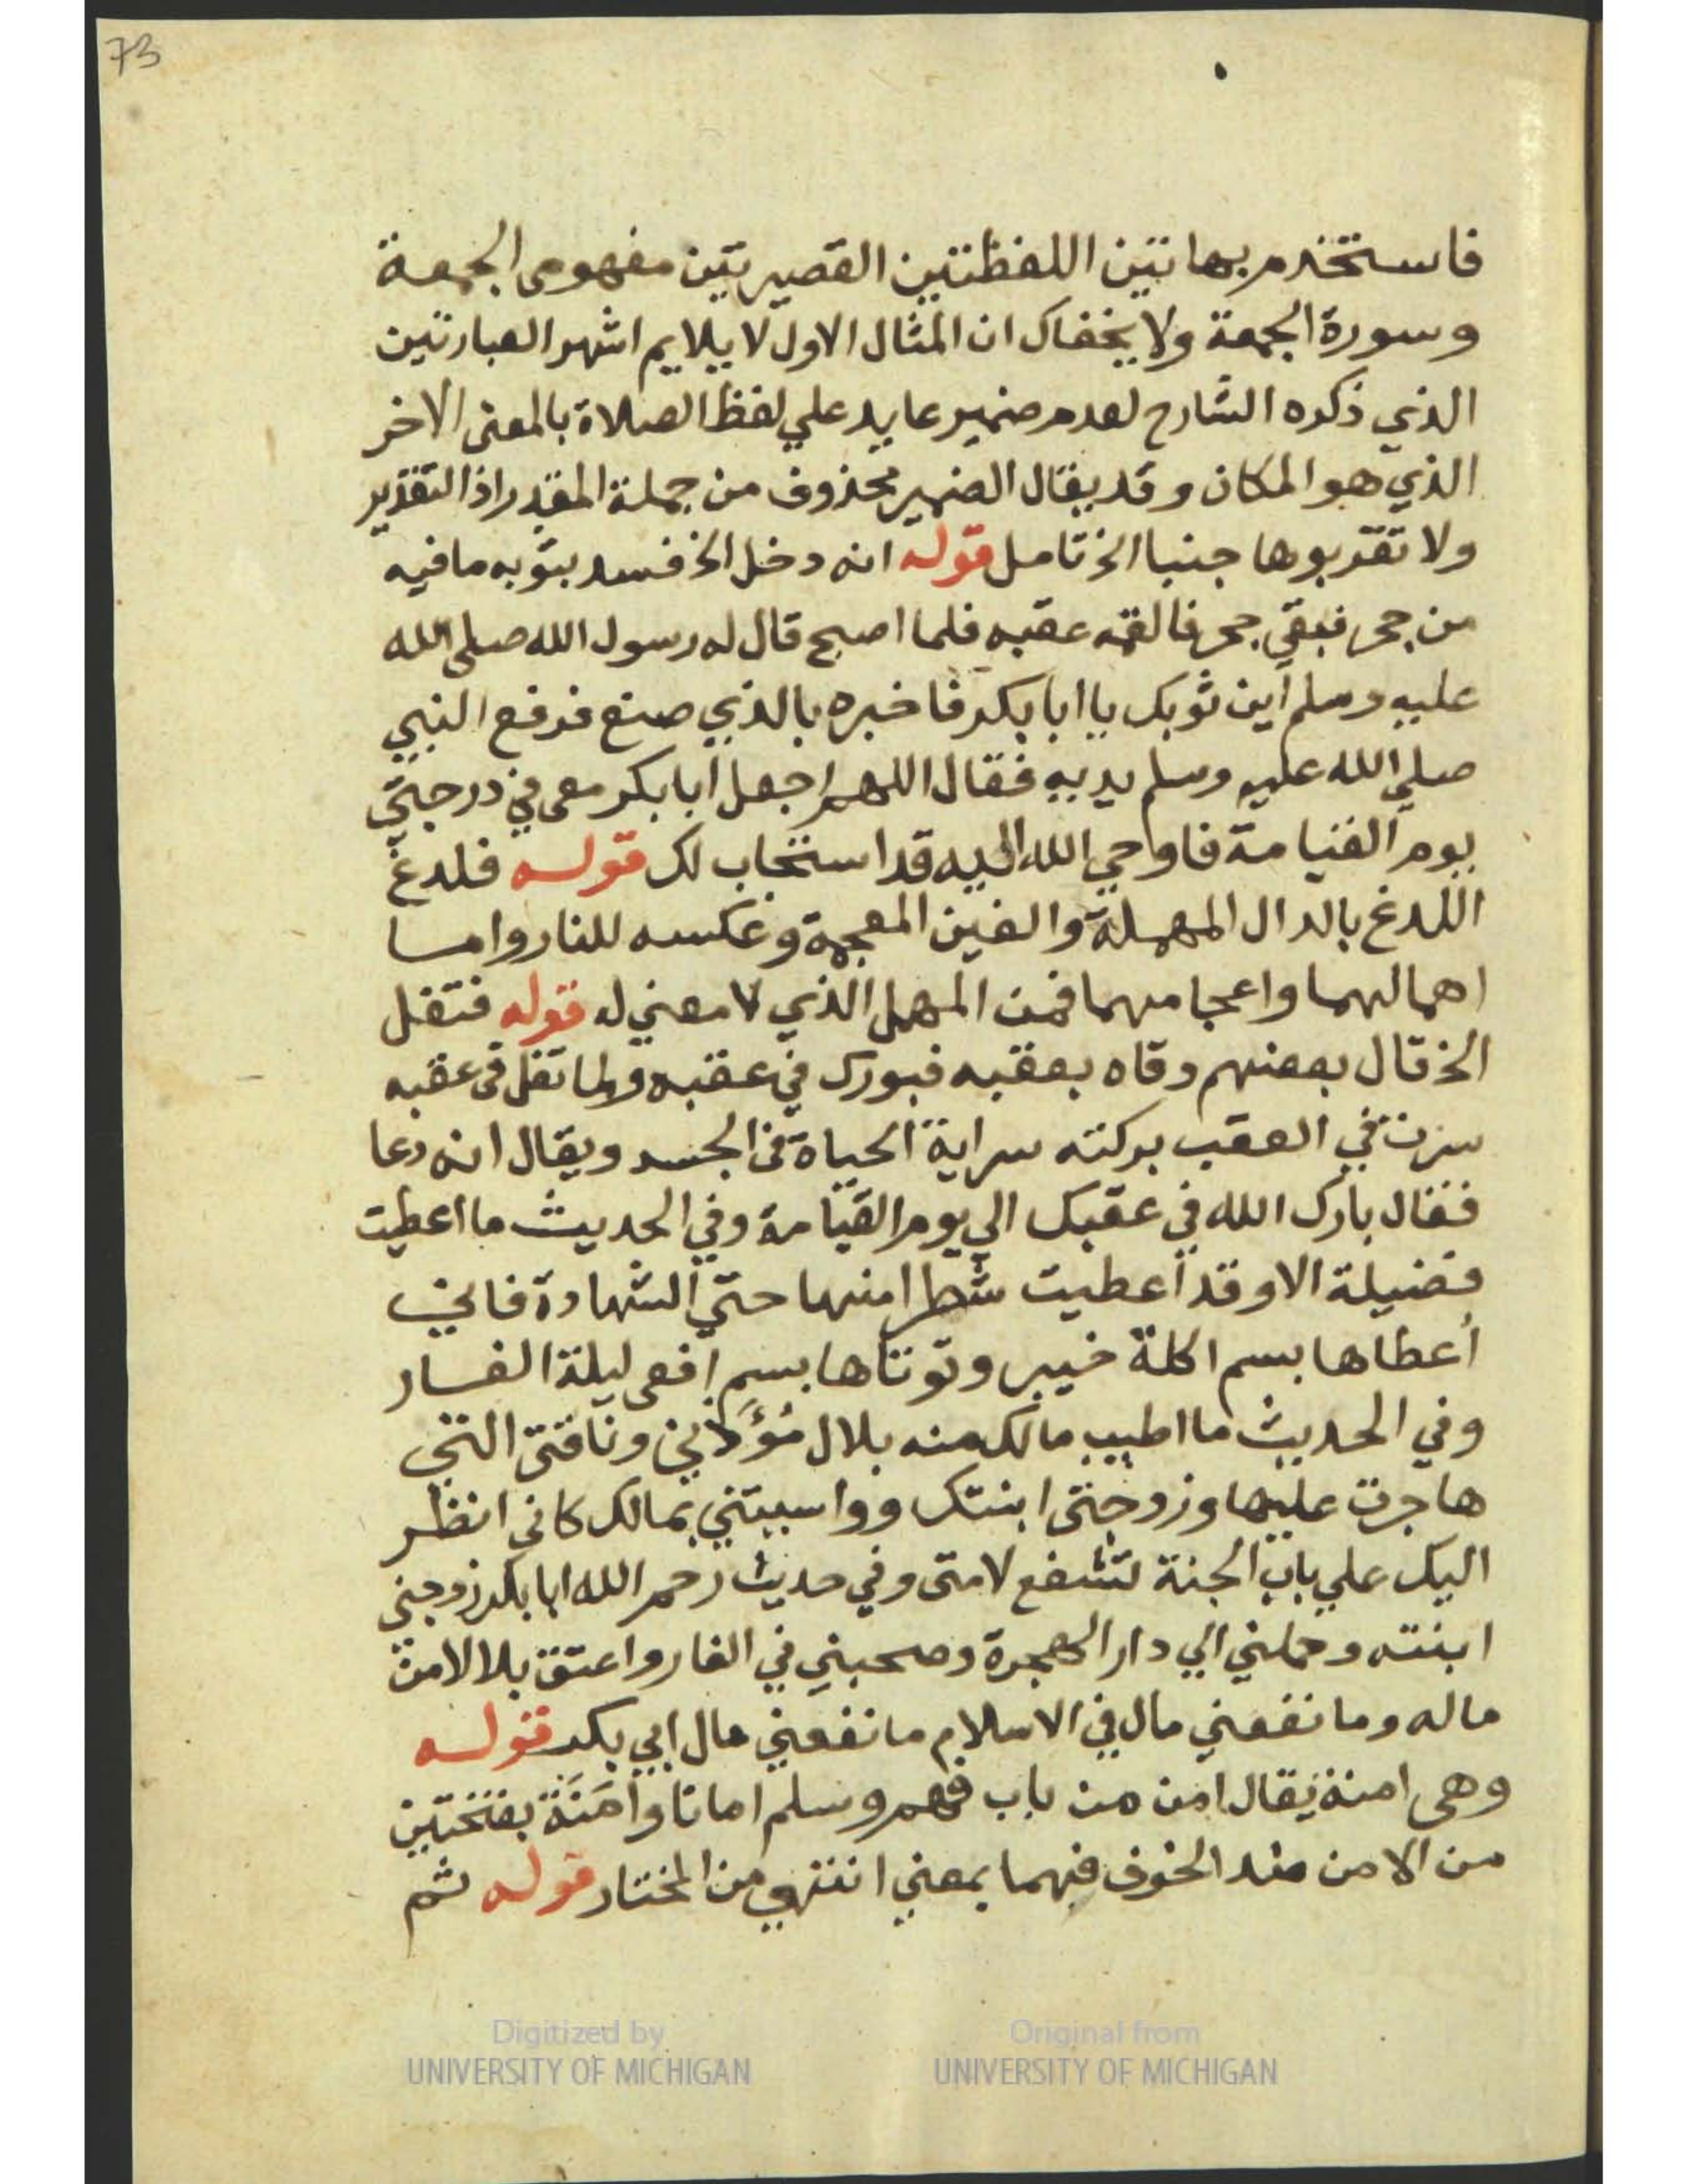 73
فاستخدم بهاتين اللفظتين القصيرتين مفهومى الجمعة
وسورة الجمعة ولا يخفاك ان المثال الاول لا يلايم اشهر العبارتين
الذي ذكره الشارح لعدم ضمير عايد علي لفظ الصلاة بالمعنى الاخر
الذي هو المكان وقد يقال الضمير محذوف من جملة المقدر اذ التقدير
ولا تقربوها جنبا الخ تامل قوله انه دخل الخ فسد بثوبه مافيه
من جحر فبقي جحر فالقمه عقبه فلما اصبح قال له رسول الله صلى الله
عليه وسلم اين ثوبك يا ابا بكر فاخبره بالذي صنع فرفع النبي
صلي الله عليه وسلم يديه فقال اللهم اجعل ابا بكر معى في درجتي
يوم القيامة فاوحي الله اليه قد استجاب لك قوله فلدغ
اللدغ بالدال المهملة والغين المعجمة وعكسه للنار واما
اهمالهما واعجامهما فمن المهمل الذي لا معني له قوله فتفل
الخ قال بعضهم وقاه بعقبه فبورك في عقبه ولما تفل فى عقبه
سرت في العقب بركته سراية الحياة في الجسد ويقال انه دعا
فقال بارك الله في عقبك الي يوم القيامة وفي الحديث ما اعطيت
فضيلة الا وقد اعطيت شطرا منها حتي الشهادة فاني
أعطاها بسم اكلة خيبر وتوتاها بسم افعى ليلة الغار
وفي الحديث ما اطيب مالك منه بلال مُؤَذني وناقتى التى
هاجرت عليها وزوجتى ابنتك وواسيتني بمالك كانى انظر
اليك علي باب الجنة تشفع لامتى وفي حديث رحم الله ابا بكر زوجنى
ابنته وحملني الي دار الهجرة وصحبني في الغار واعتق بلالا من
ماله وما نفعني مال في الاسلام ما نفعني مال ابي بكر قوله
وهى امنة يقال امن من باب فهم وسلم امانا وامَنَة بفتحتين
من الامن ضد الخوف فيهما بمعني انتهي من المختار قوله ثم
Digitized by
UNIVERSITY OF MICHIGAN
Original from
UNIVERSITY OF MICHIGAN